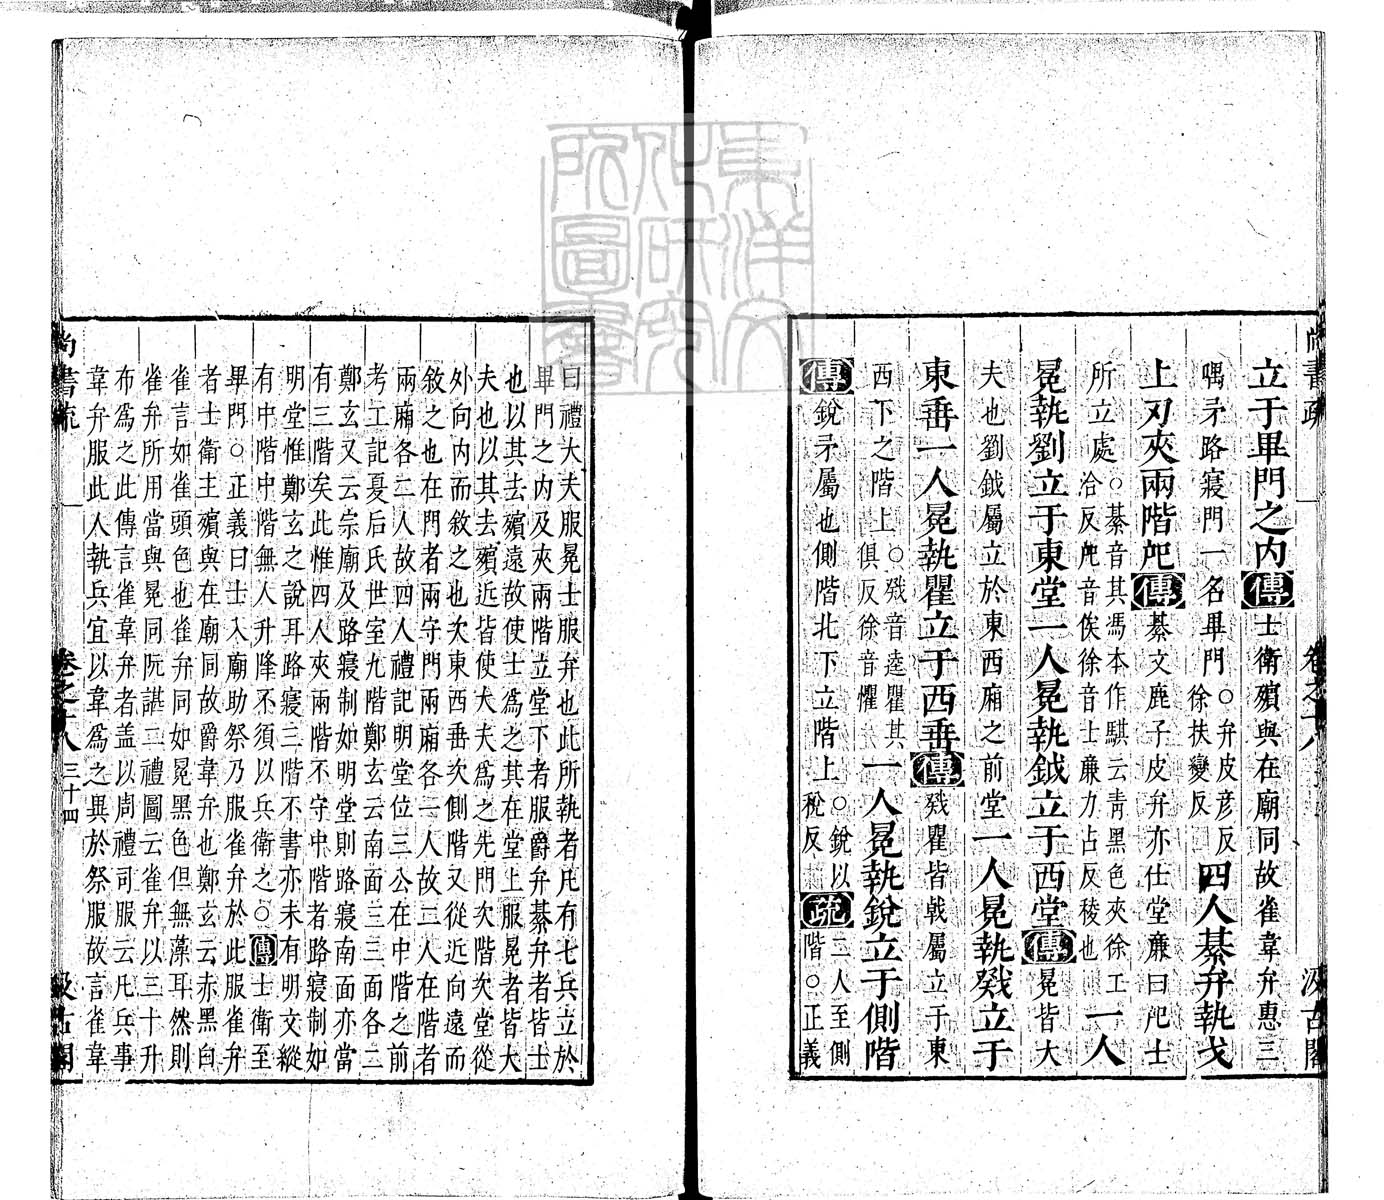 尚書疏 卷之十八 汲古閣
立于畢門之内傳士衛殯與在廟同故雀韋弁惠三
隅矛路寢門一名畢門○弁皮彥反
徐扶變反
四人綦弁執戈
上刃夾兩階戺傳綦文鹿子皮弁亦仕堂廉曰戺士
所立處○綦音其馮本作騏云青黑色夾徐工
洽反戺音俟徐音士廉力占反稜也
一人
冕執劉立于東堂一人冕執鉞立于西堂傳冕皆大
夫也劉鉞屬立於東西廂之前堂一人冕執戣立于
東垂一人冕執瞿立于西垂傳戣瞿皆戟屬立于東
西下之階上○戣音逵瞿其
俱反徐音懼
一人冕執銳立于側階
傳銳矛屬也側階北下立階上○銳以
稅反
疏二人至側
階○正義
曰禮大夫服冕士服弁也此所執者凡有七兵立於
畢門之内及夾兩階立堂下者服爵弁綦弁者皆士
也以其去殯遠故使士爲之其在堂上服冕者皆大
夫也以其去殯近皆使大夫爲之先門次階次堂從
外向内而敘之也次東西垂次側階又從近向遠而
敘之也在門者兩守門兩廂各一人故三人在階者
兩廂各二人故四人禮記明堂位三公在中階之前
考工記夏后氏世室九階鄭玄云南面三三面各二
鄭玄又云宗廟及路寢制如明堂則路寢南面亦當
有三階矣此惟四人夾兩階不守中階者路寢制如
明堂惟鄭玄之說耳路寢三階不書亦未有明文縱
有中階中階無人升降不須以兵衛之○傳士衛至
畢門○正義曰士入廟助祭乃服雀弁於此服雀弁
者士衛主殯與在廟同故爵韋弁也鄭玄云赤黑曰
雀言如雀頭色也雀弁同如冕黑色但無藻耳然則
雀弁所用當與冕同阮諶二禮圖云雀弁以三十升
布爲之此傳言雀韋弁者蓋以周禮司服云凡兵事
韋弁服此人執兵宜以韋爲之異於祭服故言雀韋
尚書疏 卷之十八 三十四 汲古閣
東洋文
化研究
所圖書